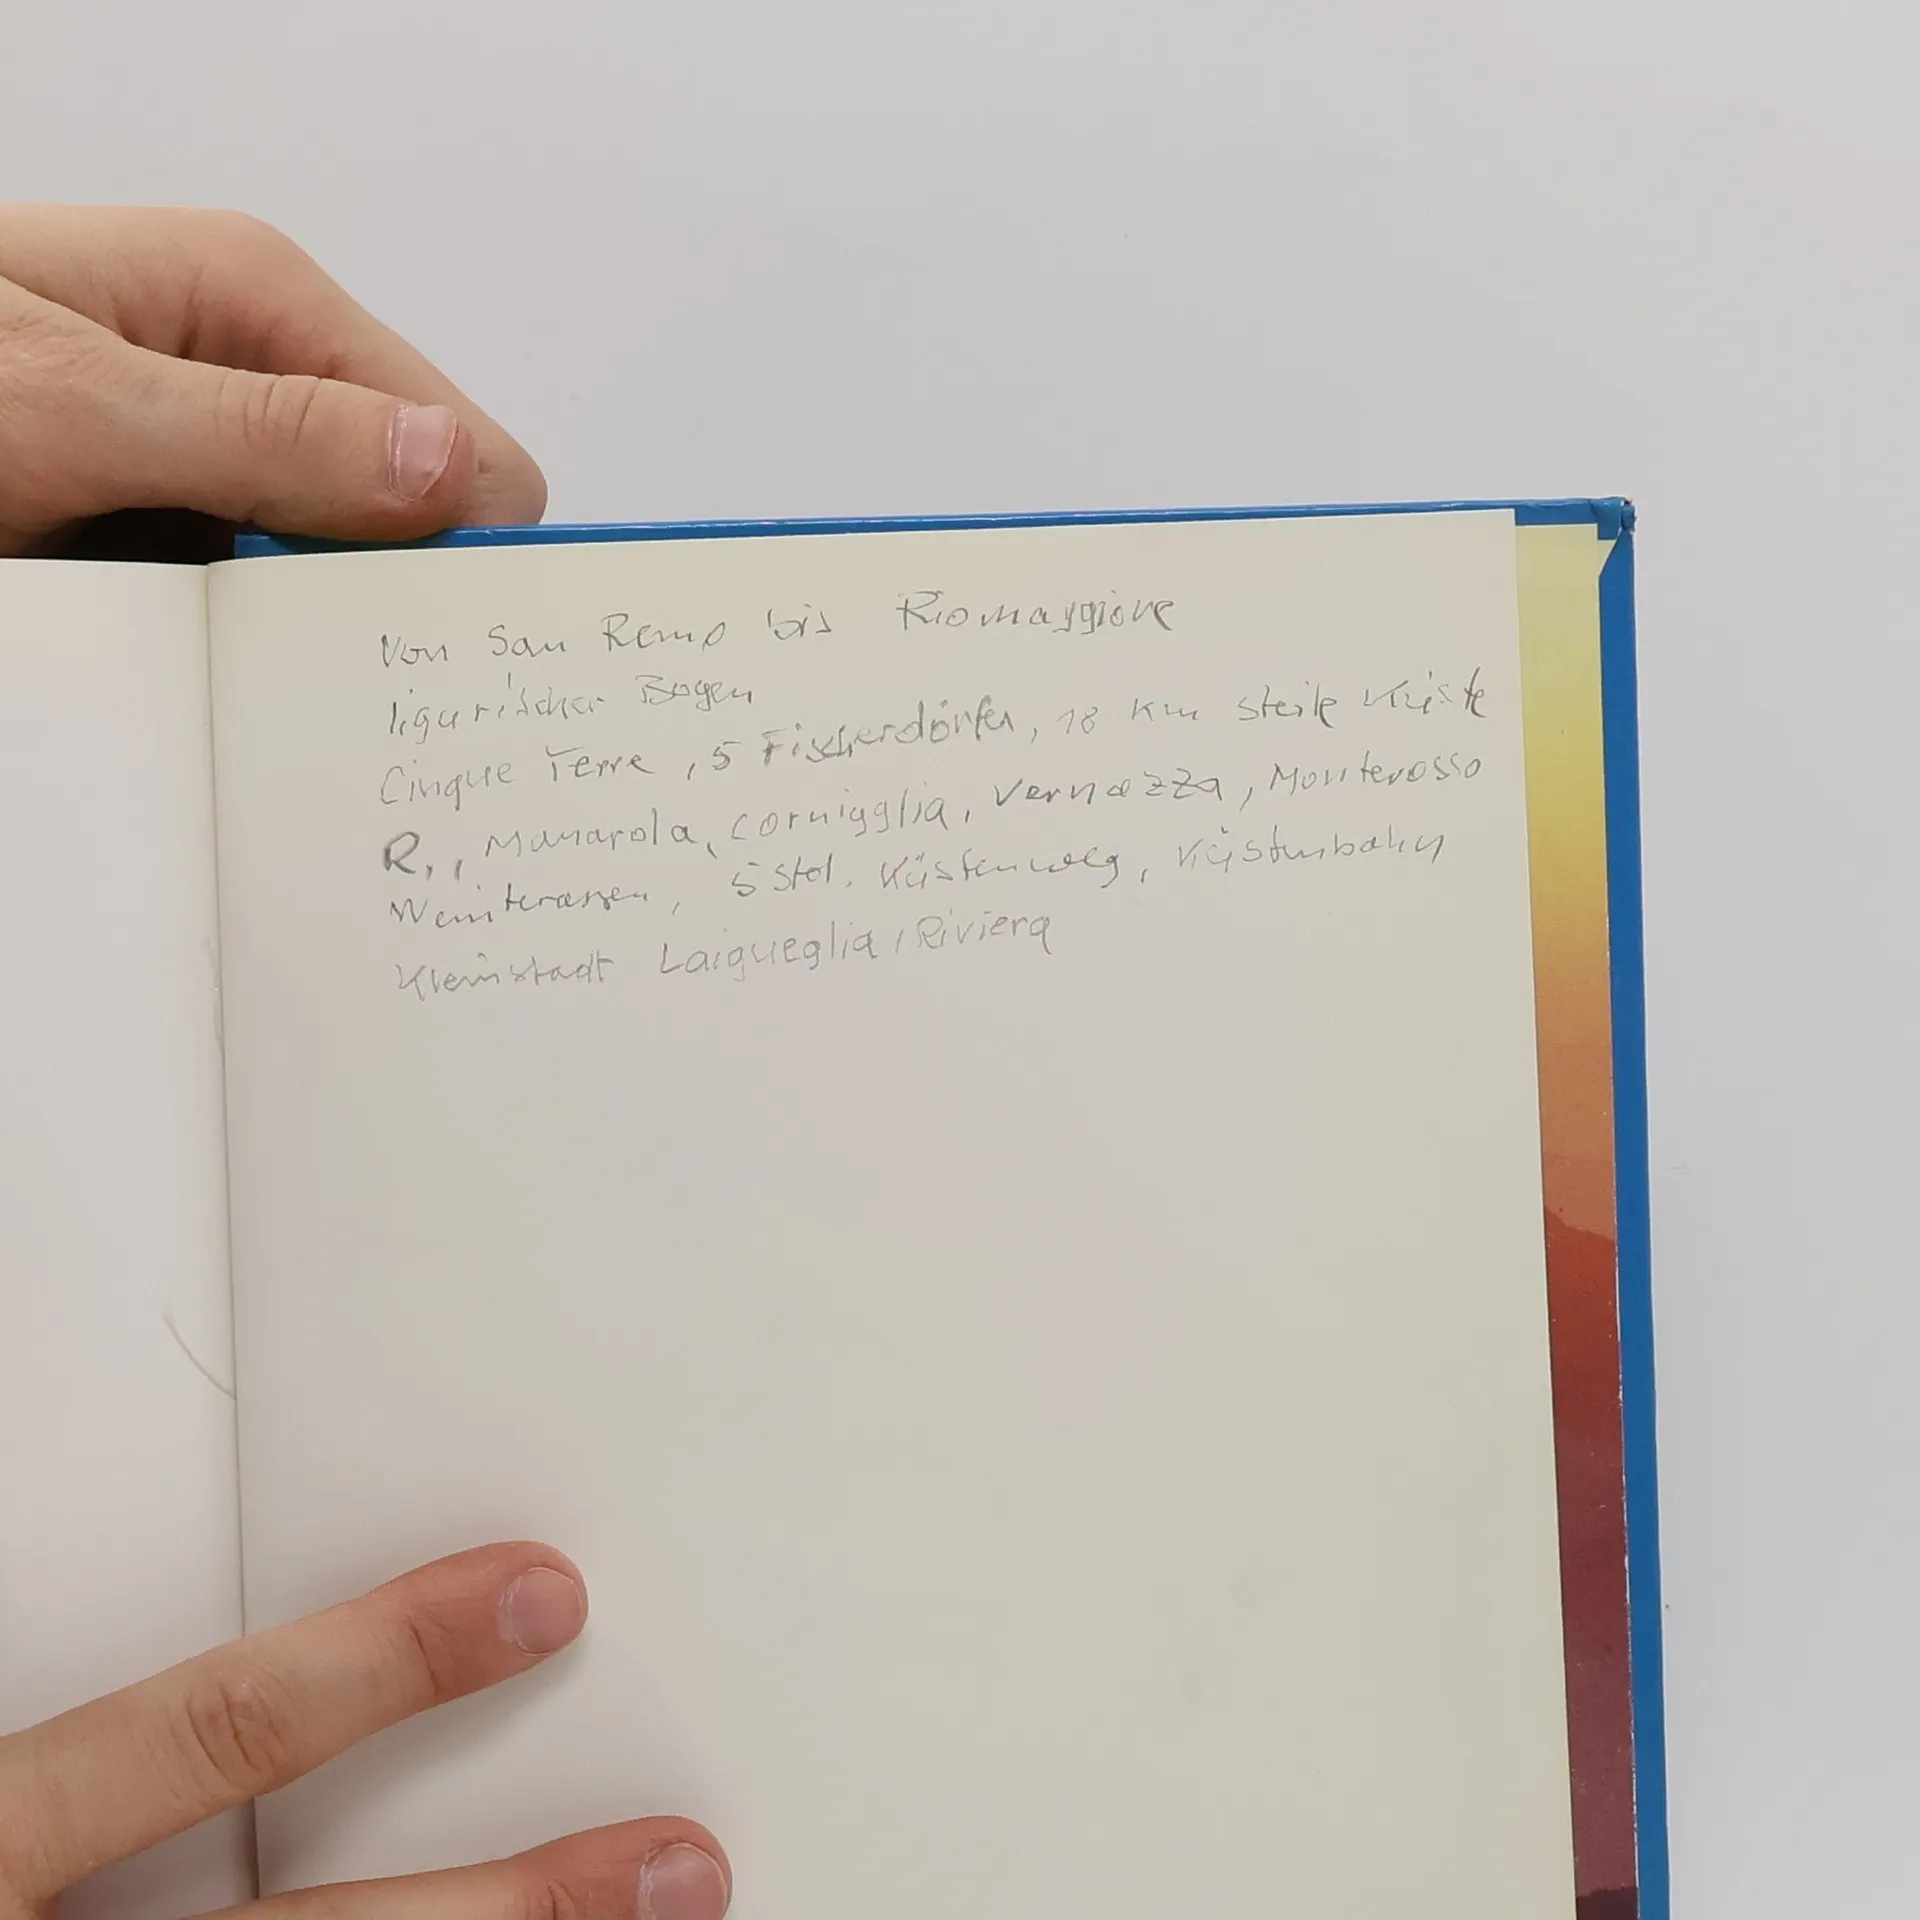 Von San Remo bis Riomaggiore
ligurischer Bogen
Cinque Terre, 5 Fischerdörfer, 18 km steile Küste
R., Manarola, Cornigglia, Vernazza, Monterosso
Weinterassen, 5 Std. Küstenweg, Küstenbahn
Kleinstadt Laigueglia, Riviera